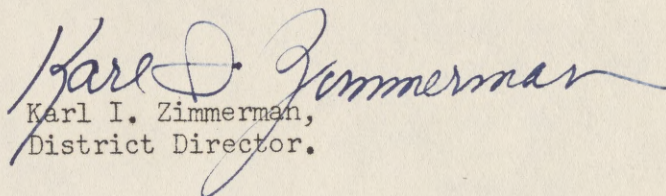 Karl I. Zimmerman
Karl I. Zimmerman,
District Director.